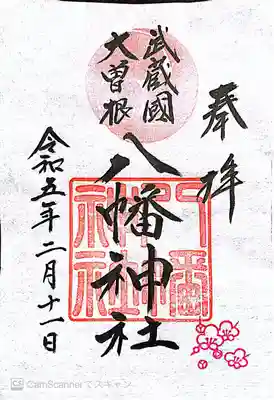 奉拝
武蔵國
大曽根
八幡神社
八幡神社
令和五年二月十一日
CS CamScannerでスキャン